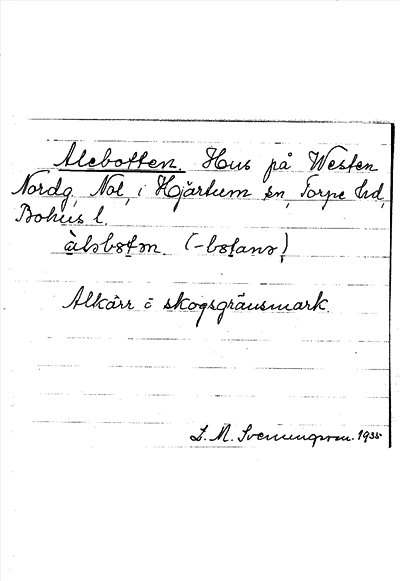 Alebotten. Hus på Westen
Nordg, Nol, i Hjärtum sn, Torpe hd,
Bohus l.
(-
Alkärr i skogsgränsmark.
L. M. Svenungsson. 1935